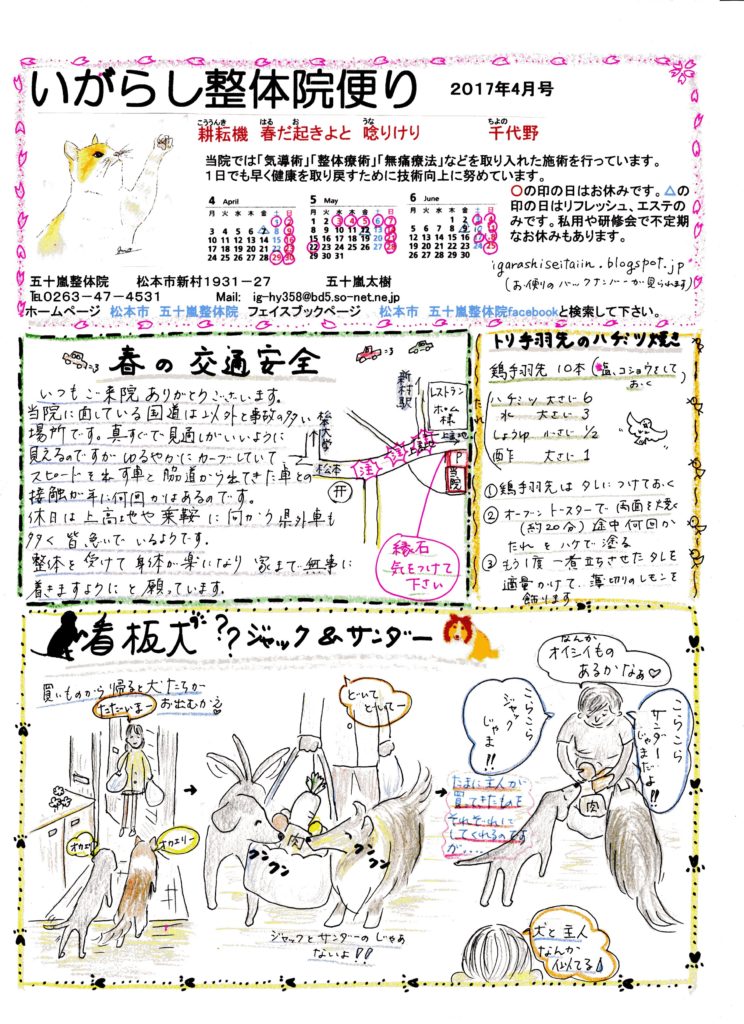 いがらし整体院便り
2017年4月号
こううんき はる お うな ちよの
耕耘機 春だ起きよと 唸りけり 千代野
当院では「気導術」「整体療術」「無痛療法」などを取り入れた施術を行っています。
1日でも早く健康を取り戻すために技術向上に努めています。
4 April
月 火 水 木 金 土 日
1 2
3 4 5 6 7 8 9
10 11 12 13 14 15 16
17 18 19 20 21 22 23
24 25 26 27 28 29 30
5 May
月 火 水 木 金 土 日
1 2 3 4 5 6 7
8 9 10 11 12 13 14
15 16 17 18 19 20 21
22 23 24 25 26 27 28
29 30 31
6 June
月 火 水 木 金 土 日
1 2 3 4
5 6 7 8 9 10 11
12 13 14 15 16 17 18
19 20 21 22 23 24 25
26 27 28 29 30
○の印の日はお休みです。△の
印の日はリフレッシュ、エステの
みです。私用や研修会で不定期
なお休みもあります。
igarashiseitaiin.blogspot.jp
(お便りのバックナンバーが見られます)
五十嵐整体院 松本市新村1931-27 五十嵐太樹
℡0263-47-4531 Mail: ig-hy358@bd5.so-net.ne.jp
ホームページ 松本市 五十嵐整体院 フェイスブックページ 松本市 五十嵐整体院facebookと検索して下さい。
春の交通安全
いつもご来院ありがとうございます。
当院に面している国道は以外と事故の多い
場所です。真すぐで見通しがいいように
見えるのですがゆるやかにカーブしていて、
スピードを出す車と脇道から出てきた車との
接触が年に何回かはあるのです。
休日は上高地や乗鞍に向かう県外車も
多く皆急いでいるようです。
整体を受けて身体が楽になり家まで無事に
着きますようにと願っています。
新村駅
レストラン
ホーム様
松本大学
上高地
松本
注
注
注
P
当院
縁石
気をつけて
下さい
トリ手羽先のハチミツ焼き
鶏手羽先 10本(塩、コショウをして
おく
たれ
ハチミツ 大さじ6
水 大さじ3
しょうゆ 小さじ1/2
酢 大さじ1
①鶏手羽先はタレにつけておく
②オーブントースターで両面を焼く
(約20分)途中何回か
たれをハケで塗る
③もう1度一煮立ちさせたタレを
適量かけて、薄切りのレモンを
飾ります
看板犬だ??ジャック&サンダー
買いものから帰ると犬たちが
お出むかえ
ただいまー
オカエリ
オカエリー
どいて
どいてー
肉
クンクン
クンクン
ジャックとサンダーのじゃあ
ないよ!!
たまに主人が
買ってきたものを
それぞれに
してくれるのです
が....
こらこら
ジャック
じゃま!!
なんか
オイシイもの
あるかなぁ♡
こらこら
サンダー
じゃまだよ!!
肉
犬と主人
なんか
似てる